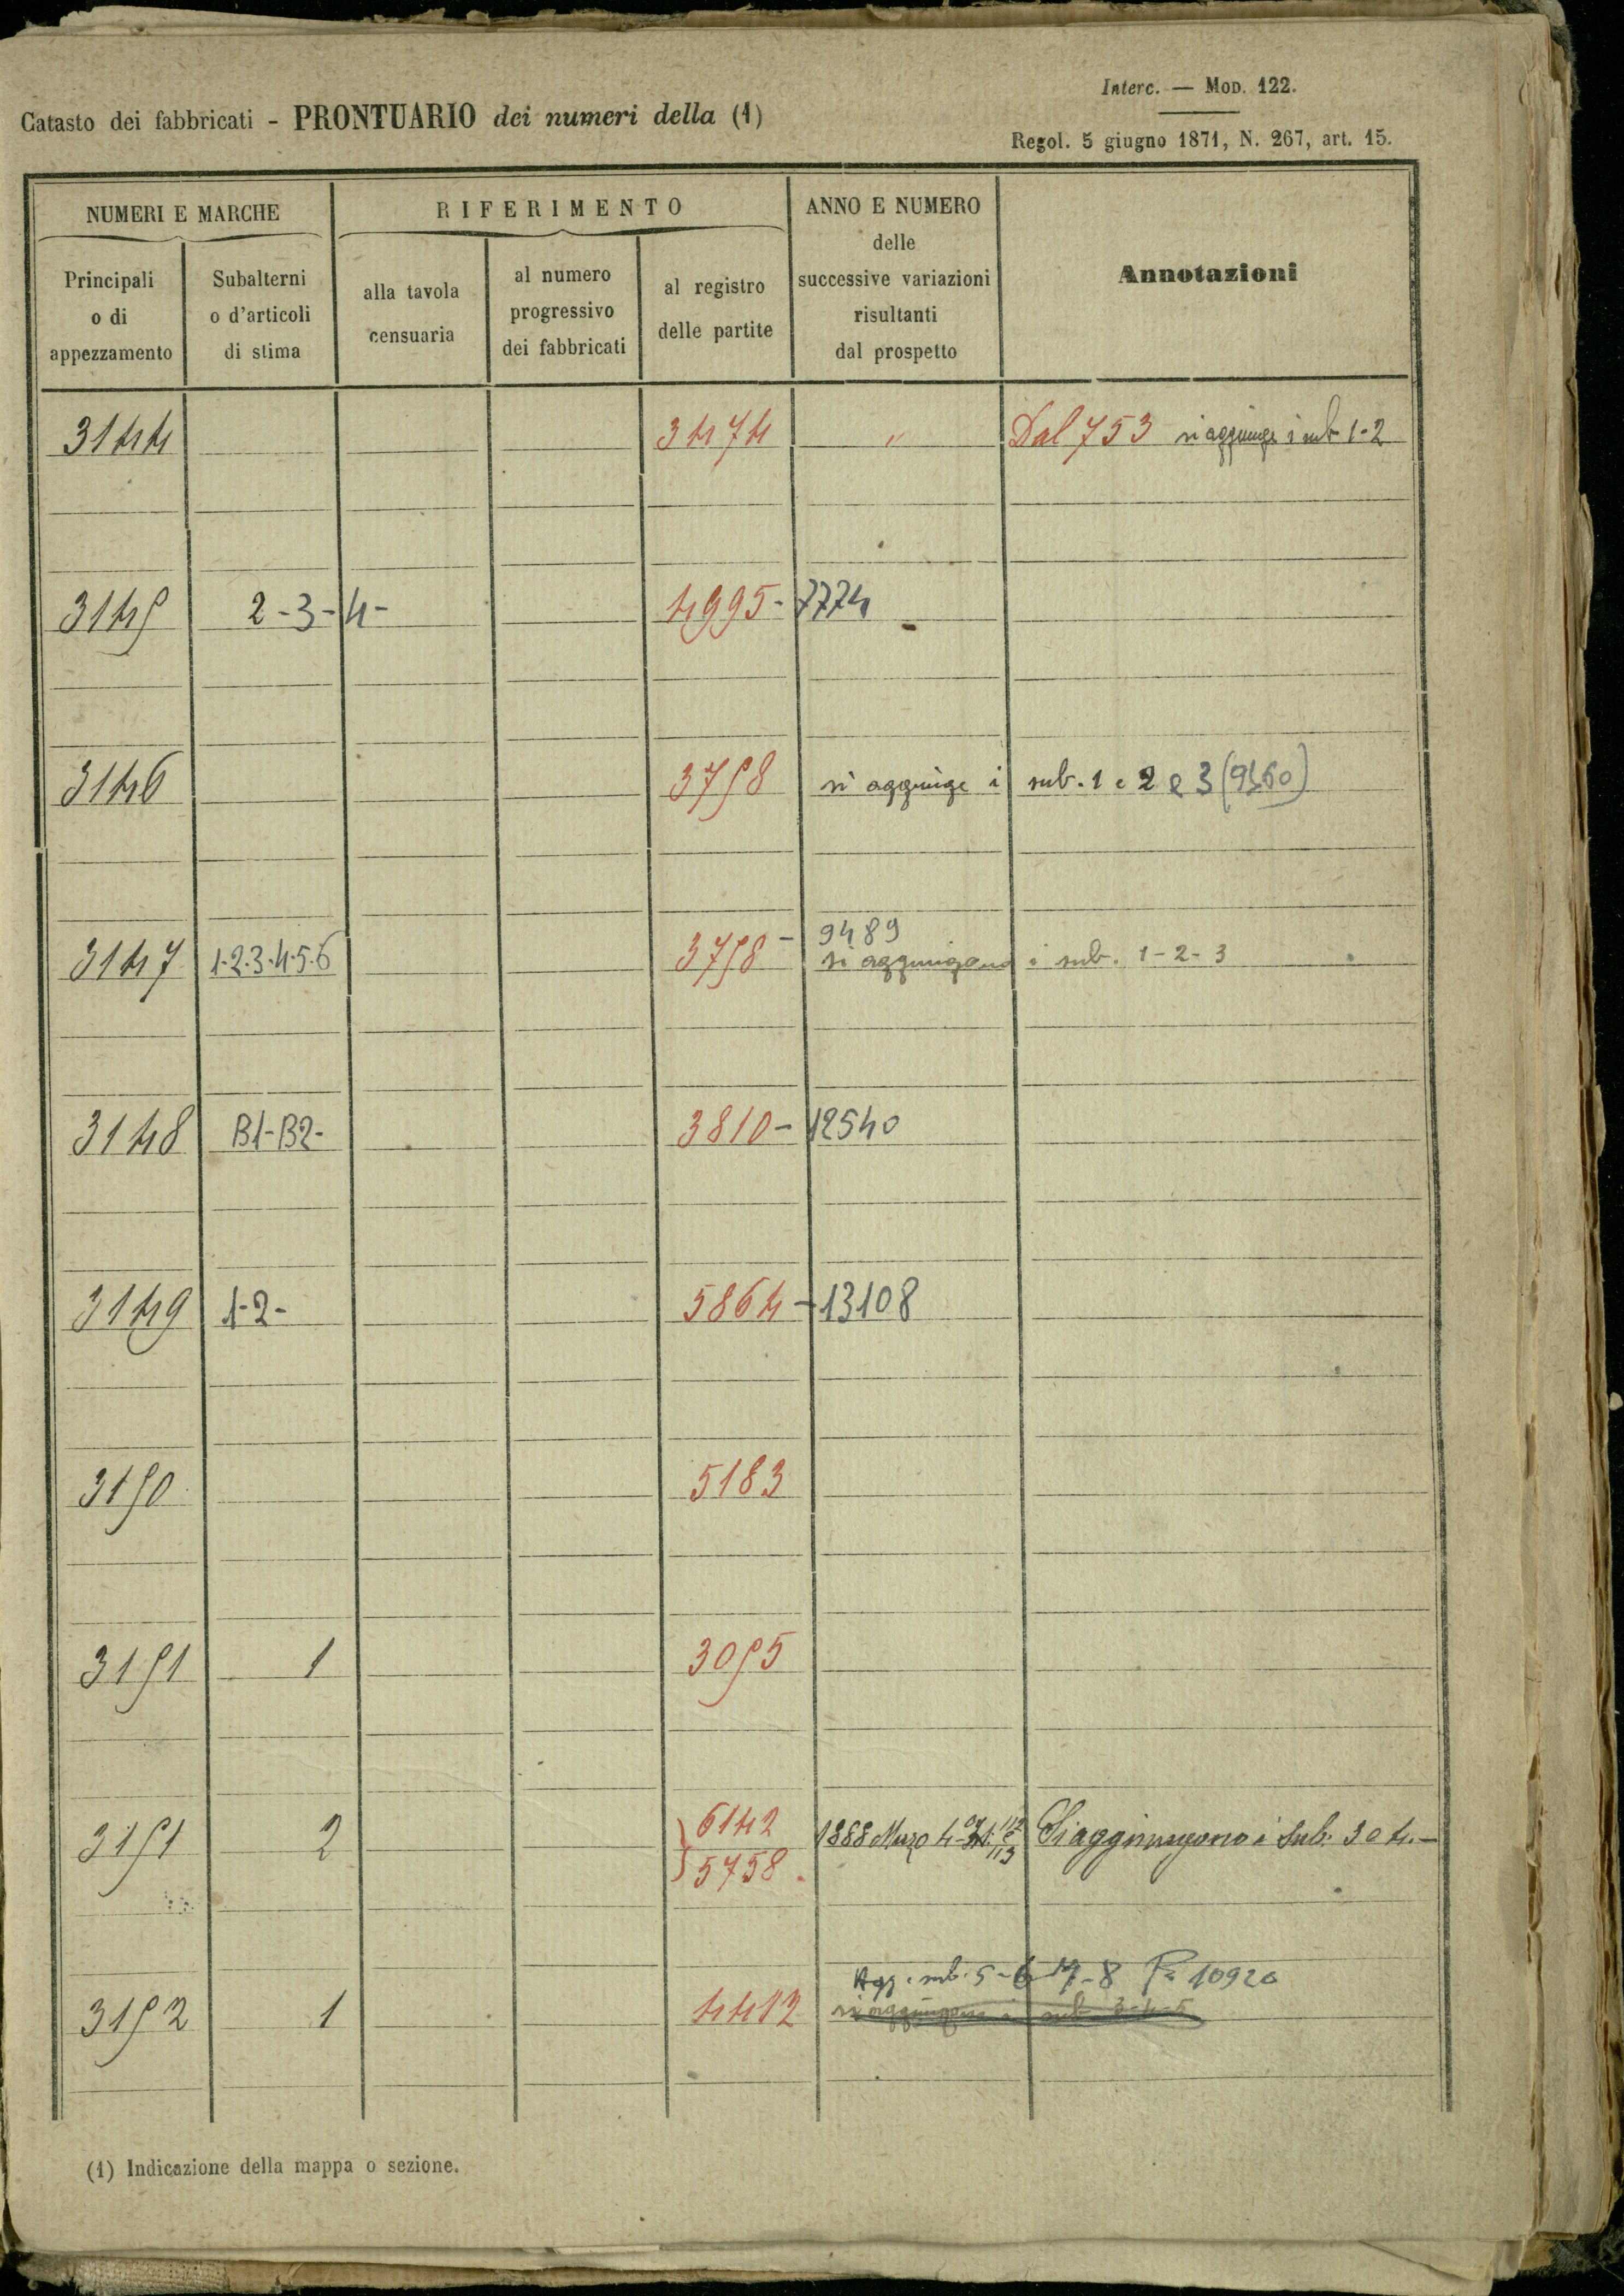 Interc. — Mod. 122.
Catasto dei fabbricati - PRONTUARIO dei numeri della (1)
Regol. 5 giugno 1871, N. 267, art. 15.
NUMERI E MARCHE
RIFERIMENTO
ANNO E NUMERO
delle
successive variazioni
risultanti
dal prospetto
Annotazioni
Principali
o di
appezzamento
Subalterni
o d'articoli
di stima
alla tavola
censuaria
al numero
progressivo
dei fabbricati
al registro
delle partite
3144 3474 " Dal 753 si aggiunge i sub 1-2
3145 2-3-4- 4995- 7774
3146 3758 si aggiunge i sub. 1 e 2 e 3 (9360)
9489
3147 1.2.3.4.5.6 3758- si aggiungono i sub. 1-2-3
3148 B1-B2- 3810- 12540
3149 1-2- 5864-13108
3150 5183
3151 1 3055
3151 2 6142 1888 Marzo 4- 112 e 113 Si aggiungono i sub. 3 e 4.-
5758
Agg. sub. 5-6-7-8 Pa 10920
3152 1 4412 si aggiungono i sub 3-4-5
(1) Indicazione della mappa o sezione.